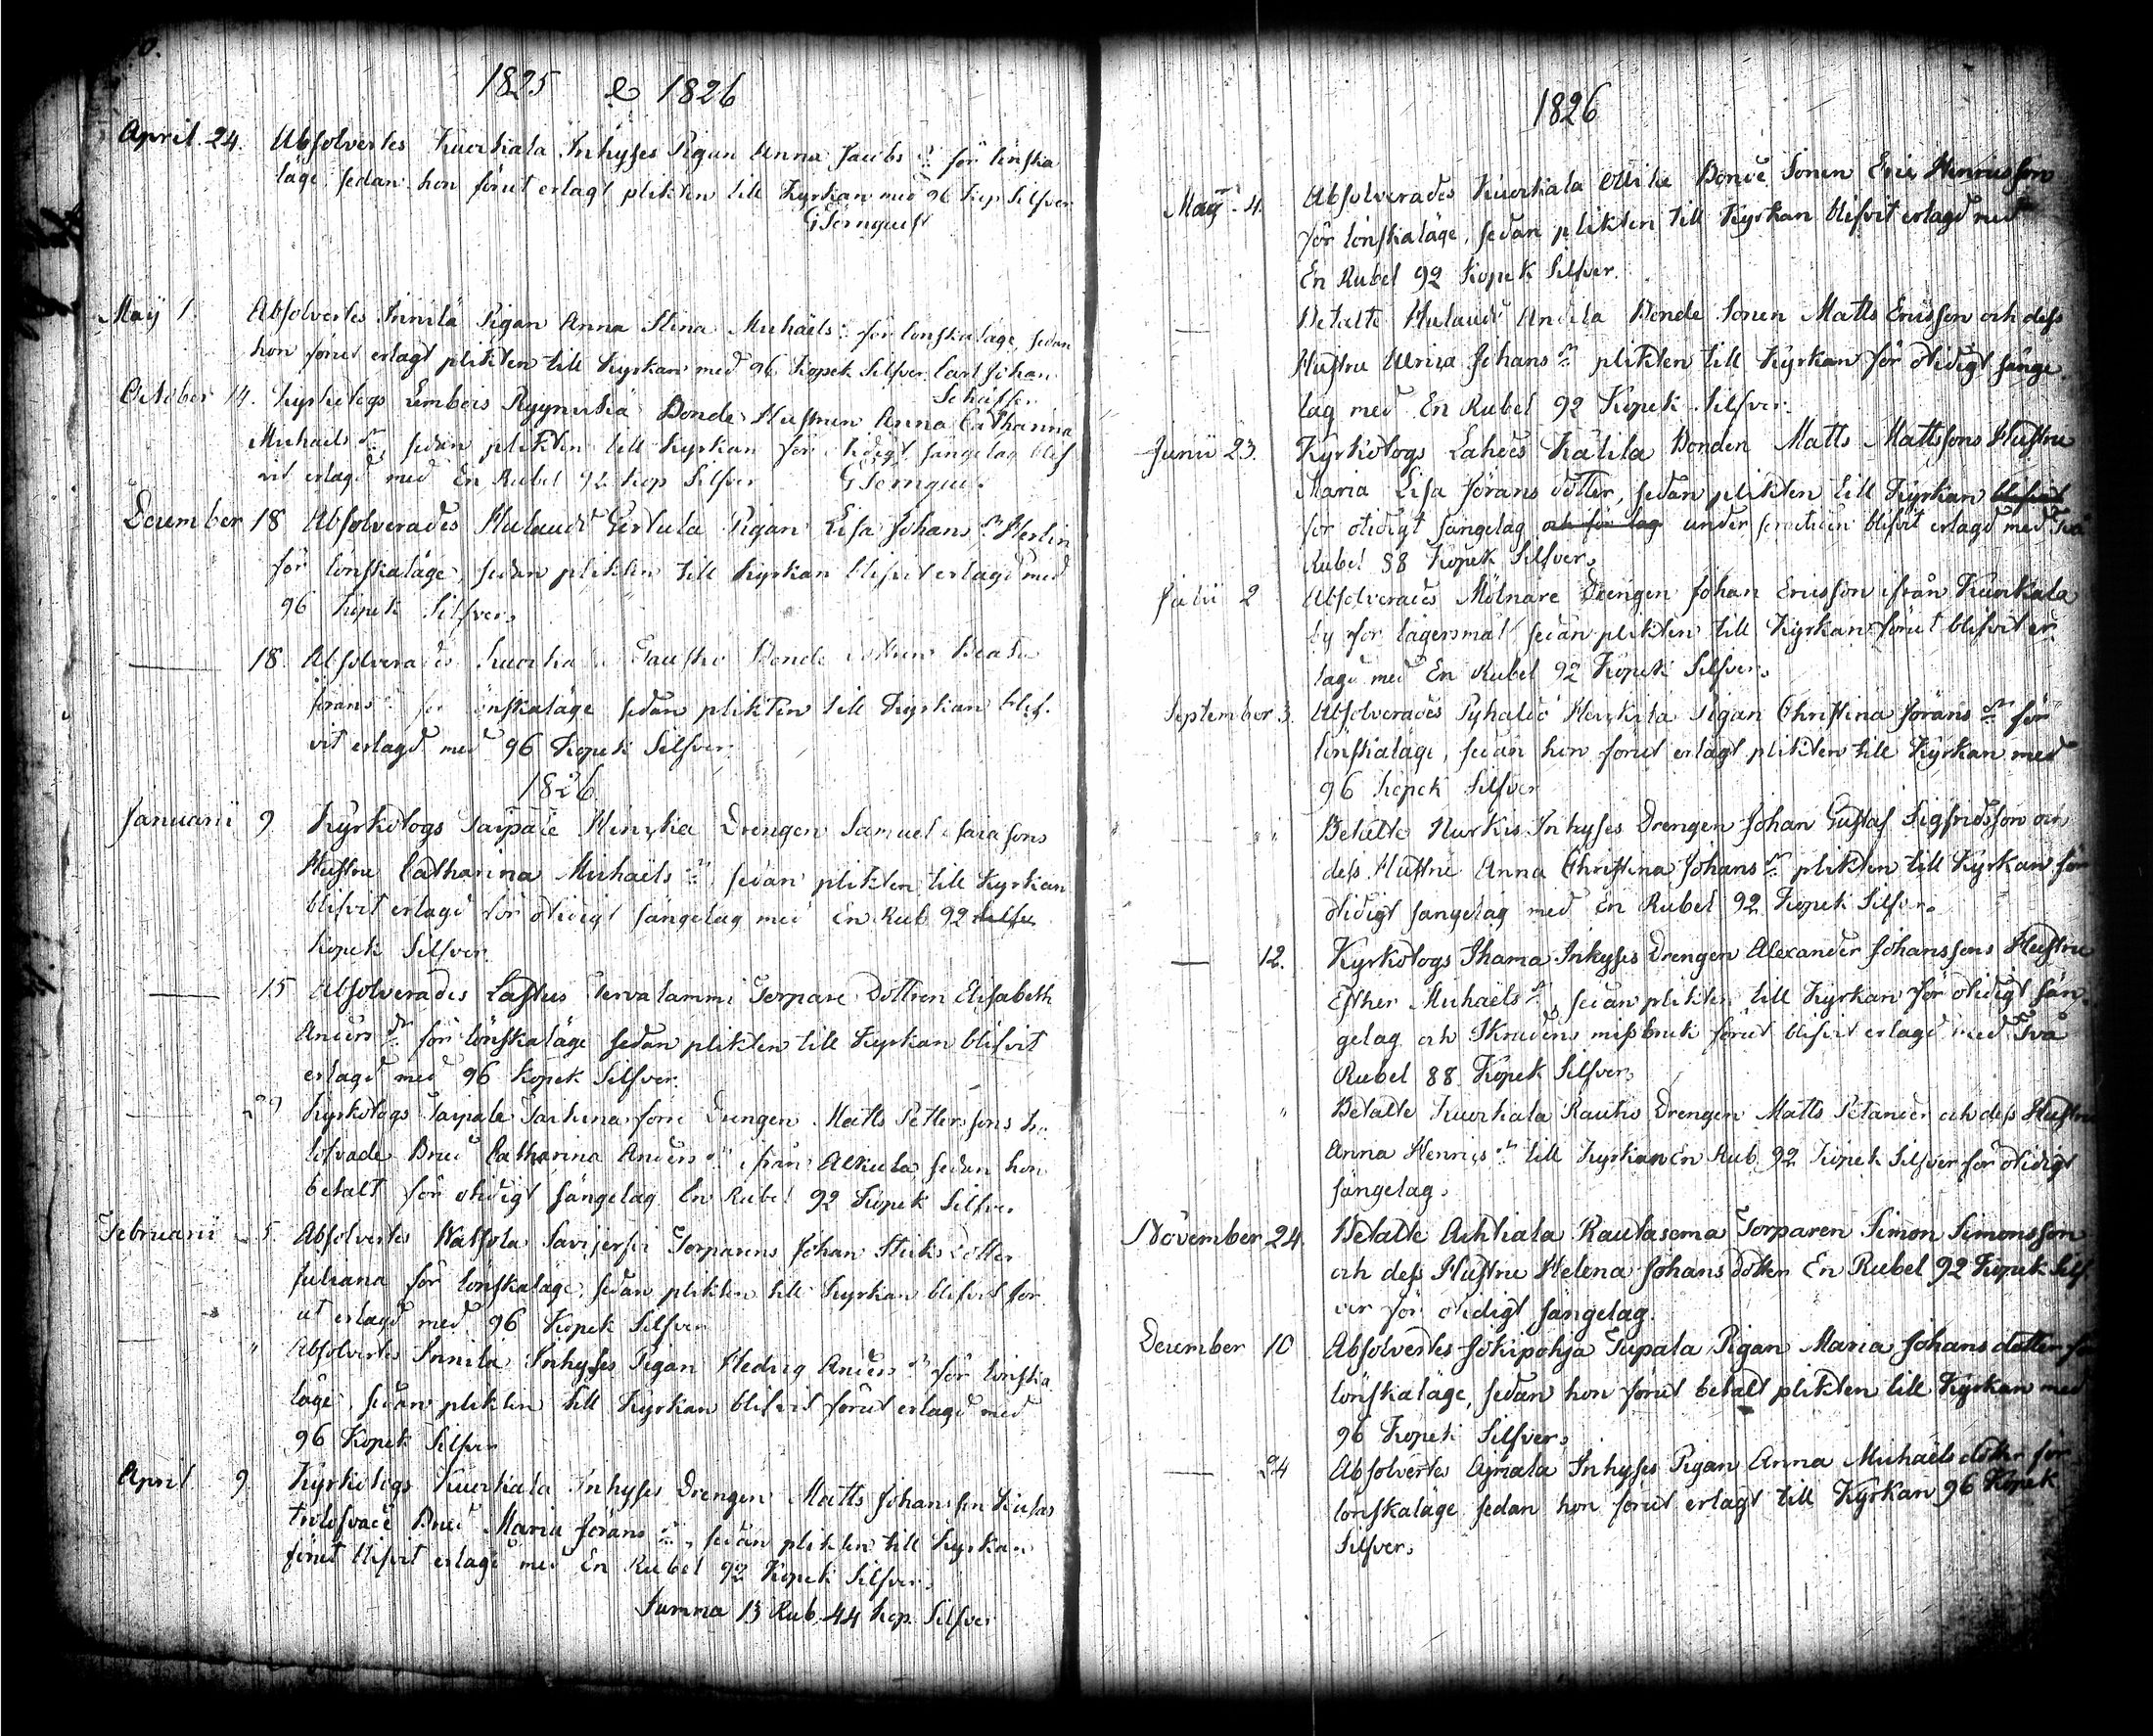 1825 & 1826
April 24. Absolvertes Kuorkiala Inhyses Pigan Anna Jacobs dr för lönska
läge, sedan hon förut erlagt plikten till Kyrkan med 96 Kop Silfver
GTörnquist
Maÿ 1. Absolvertes Innilä Pigan Anna Stina Michaels dr för lönskaläge, sedan
hon förut erlagt plikten till Kyrkan med 96 Kopek Silfver. Carl Johan
October 14. Kyrkotogs Lembois Bonde Hustrun Anna Catharina
Michaels dr, sedan plikten till Kyrkan för otidigt sängelag blif
vit erlagd med En Rubel 92 Kop Silfver
December 18 Absolverades Hulaud Pigan Lisa Johans dr Herlin
för lönskaläge, sedan plikten till Kyrkan blifvit erlagd med
96 Kopek Silfver.
— 18. Absolverades Bonde
Jörans dr för lönskaläge sedan plikten till Kyrkan blif-
vit erlagd med 96 Kopek Silfver
1826
Januarii 9 Kyrkotogs Taipale Drengen Samuel Isaacsons
Hustru Catharina Michaels dr, sedan plikten till Kyrkan
blifvit erlagd för otidigt sängelag med En Rub 92 Silfve
Kopek Silfver.
— 15 Absolverades Lastus Tervalammi Torpare Dottren Elisabeth
Anders dr för lönskaläge sedan plikten till Kyrkan blifvit
erlagd med 96 Kopek Silfver.
— 29 Kyrkotogs Taipale Drengen Matts Pettersons tro
lofvade Brud Catharina Anders dr ifrån Alkula, sedan hon
betalt för otidigt sängelag En Rubel 92 Kopek Silfver
Februarii 5. Absolvertes Watsola Savijerfvi Torparens Johan dotter
Juliana för lönskaläge, sedan plikten till Kyrkan blifvit för
ut erlagd med 96 Kopek Silfver
— " Absolvertes Innilä Inhyses Pigan Hedvig Anders dr för lönska
läge, sedan plikten till Kyrkan blifvit förut erlagd med
96 Kopek Silfver
April 9 Kyrkotogs Kuorkiala Inhyses Drengen Matts Johansson
trolofvade Brud Maria Jörans dr, sedan plikten till Kyrkan
förut blifvit erlagd med En Rubel 92 Kopek Silfver.
Summa 13 Rub. 44 kop. Silfver
1826
Maÿ 4. Absolverades Kuorkiala Ollike Bonde Sonen Eric Henricsson
för lönskaläge, sedan plikten till Kyrkan blifvit erlagd med
En Rubel 92 Kopek Silfver.
— Betalte Hulaud Bonde Sonen Matts Ericsson och dess
Hustru Ulrica Johans dr plikten till Kyrkan för otidigt sänge
lag med En Rubel 92 Kopek Silfver.
Junii 23. Kyrkotogs Lahdes Kälilä Bonden Matts Mattsons Hustru
Maria Lisa Jörans dotter, sedan plikten till Kyrkan blifvit
för otidigt sängelag och för lag under blifvit erlagd med Två
Rubel 88 Kopek Silfver.
Julii 2 Absolverades Mölnare Drengen Johan Ericsson ifrån Kuorkiala
by för lägersmål sedan plikten till Kyrkan förut blifvit er
lagd med En Rubel 92 Kopek Silfver.
September 3. Absolverades Pyhalio Heickilä Pigan Christina Jörans dr för
lönskaläge, sedan hon förut erlagt plikten till Kyrkan med
96 kopek Silfver
— " Betalte Nurkis Inhyses Drengen Johan Gustaf Sigfridsson och
dess Hustru Anna Christina Johans dr plikten till Kyrkan för
otidigt sängelag med En Rubel 92 Kopek Silfver.
— 12. Kyrkotogs Ihama Inhyses Drengen Alexander Johanssons Hustru
Esther Michaels dr, sedan plikten till Kyrkan för otidigt sän-
gelag och Skrudens missbruk förut blifvit erlagd med Två
Rubel 88 Kopek Silfver.
— " Betalte Kuorkiala Rautio Drengen Matts Petander och dess Hustru
Anna Henrics dr till Kyrkan En Rub 92 Kopek Silfver för otidigt
sängelag.
November 24. Betalte Achtiala Rautasoma Torparen Simon Simonsson
och dess Hustru Helena Johans dotter En Rubel 92 Kopek Silf
ver för otidigt sängelag.
December 10 Absolvertes Jokipohja Tupala Pigan Maria Johans dotter för
lönskaläge, sedan hon förut betalt plikten till Kyrkan med
96 Kopek Silfver.
— 24 Absolvertes Äyriälä Inhyses Pigan Anna Michaels dotter för
lönskaläge sedan hon förut erlagt till Kyrkan 96 Kopek
Silfver.